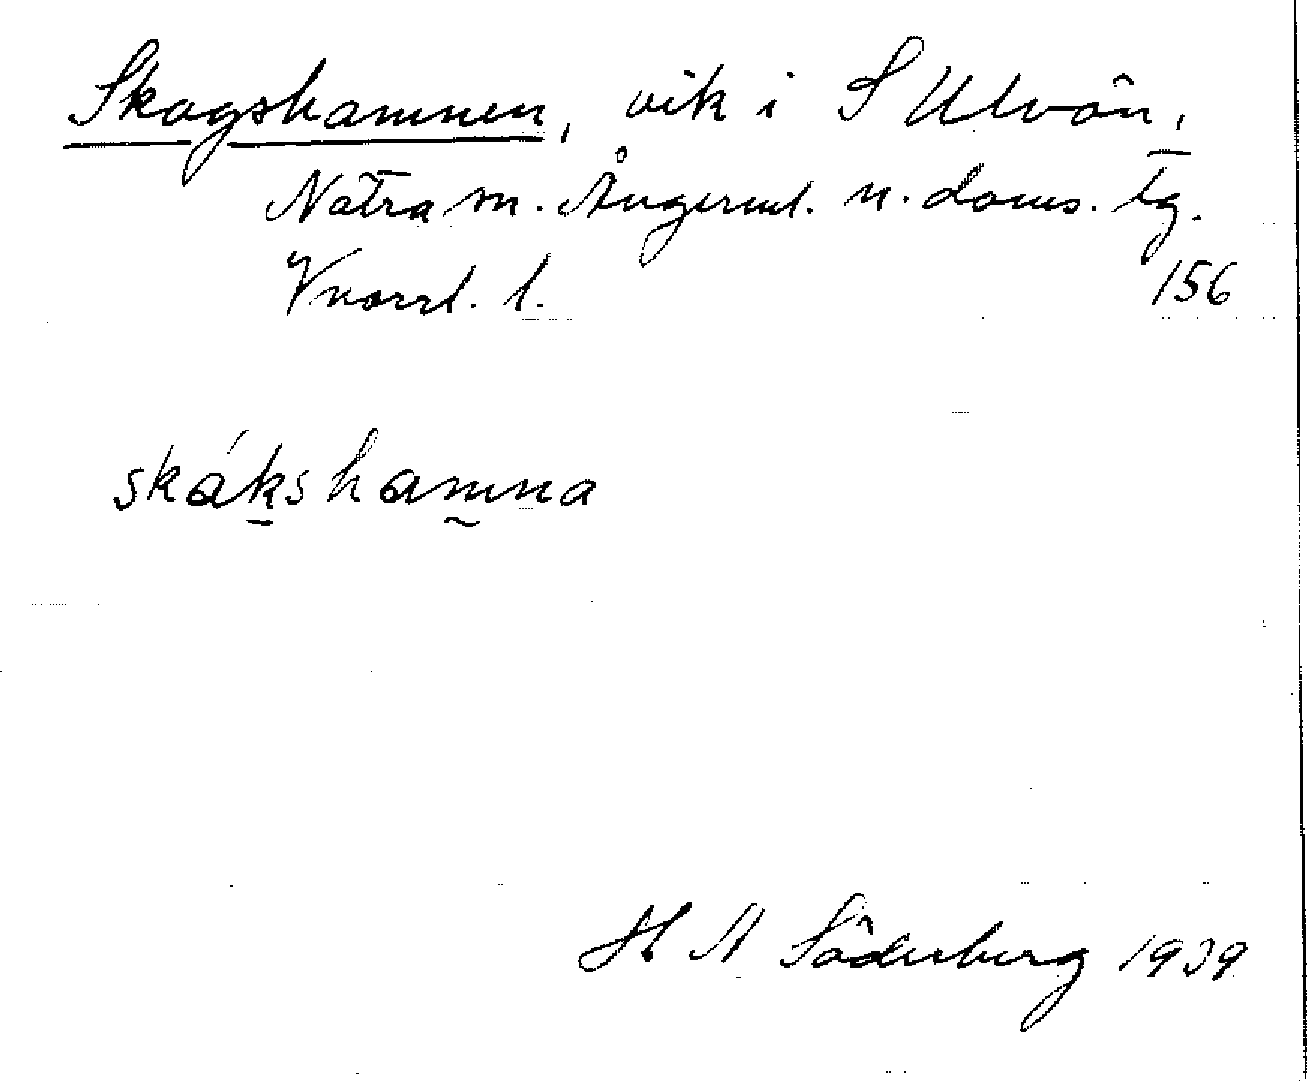 Skagshamnen, vik i S Ulvön,
Nätra sn. Ångerml. n. doms. tg.
Vnorrl. l. 156
skákshamna
H A Söderberg 1939